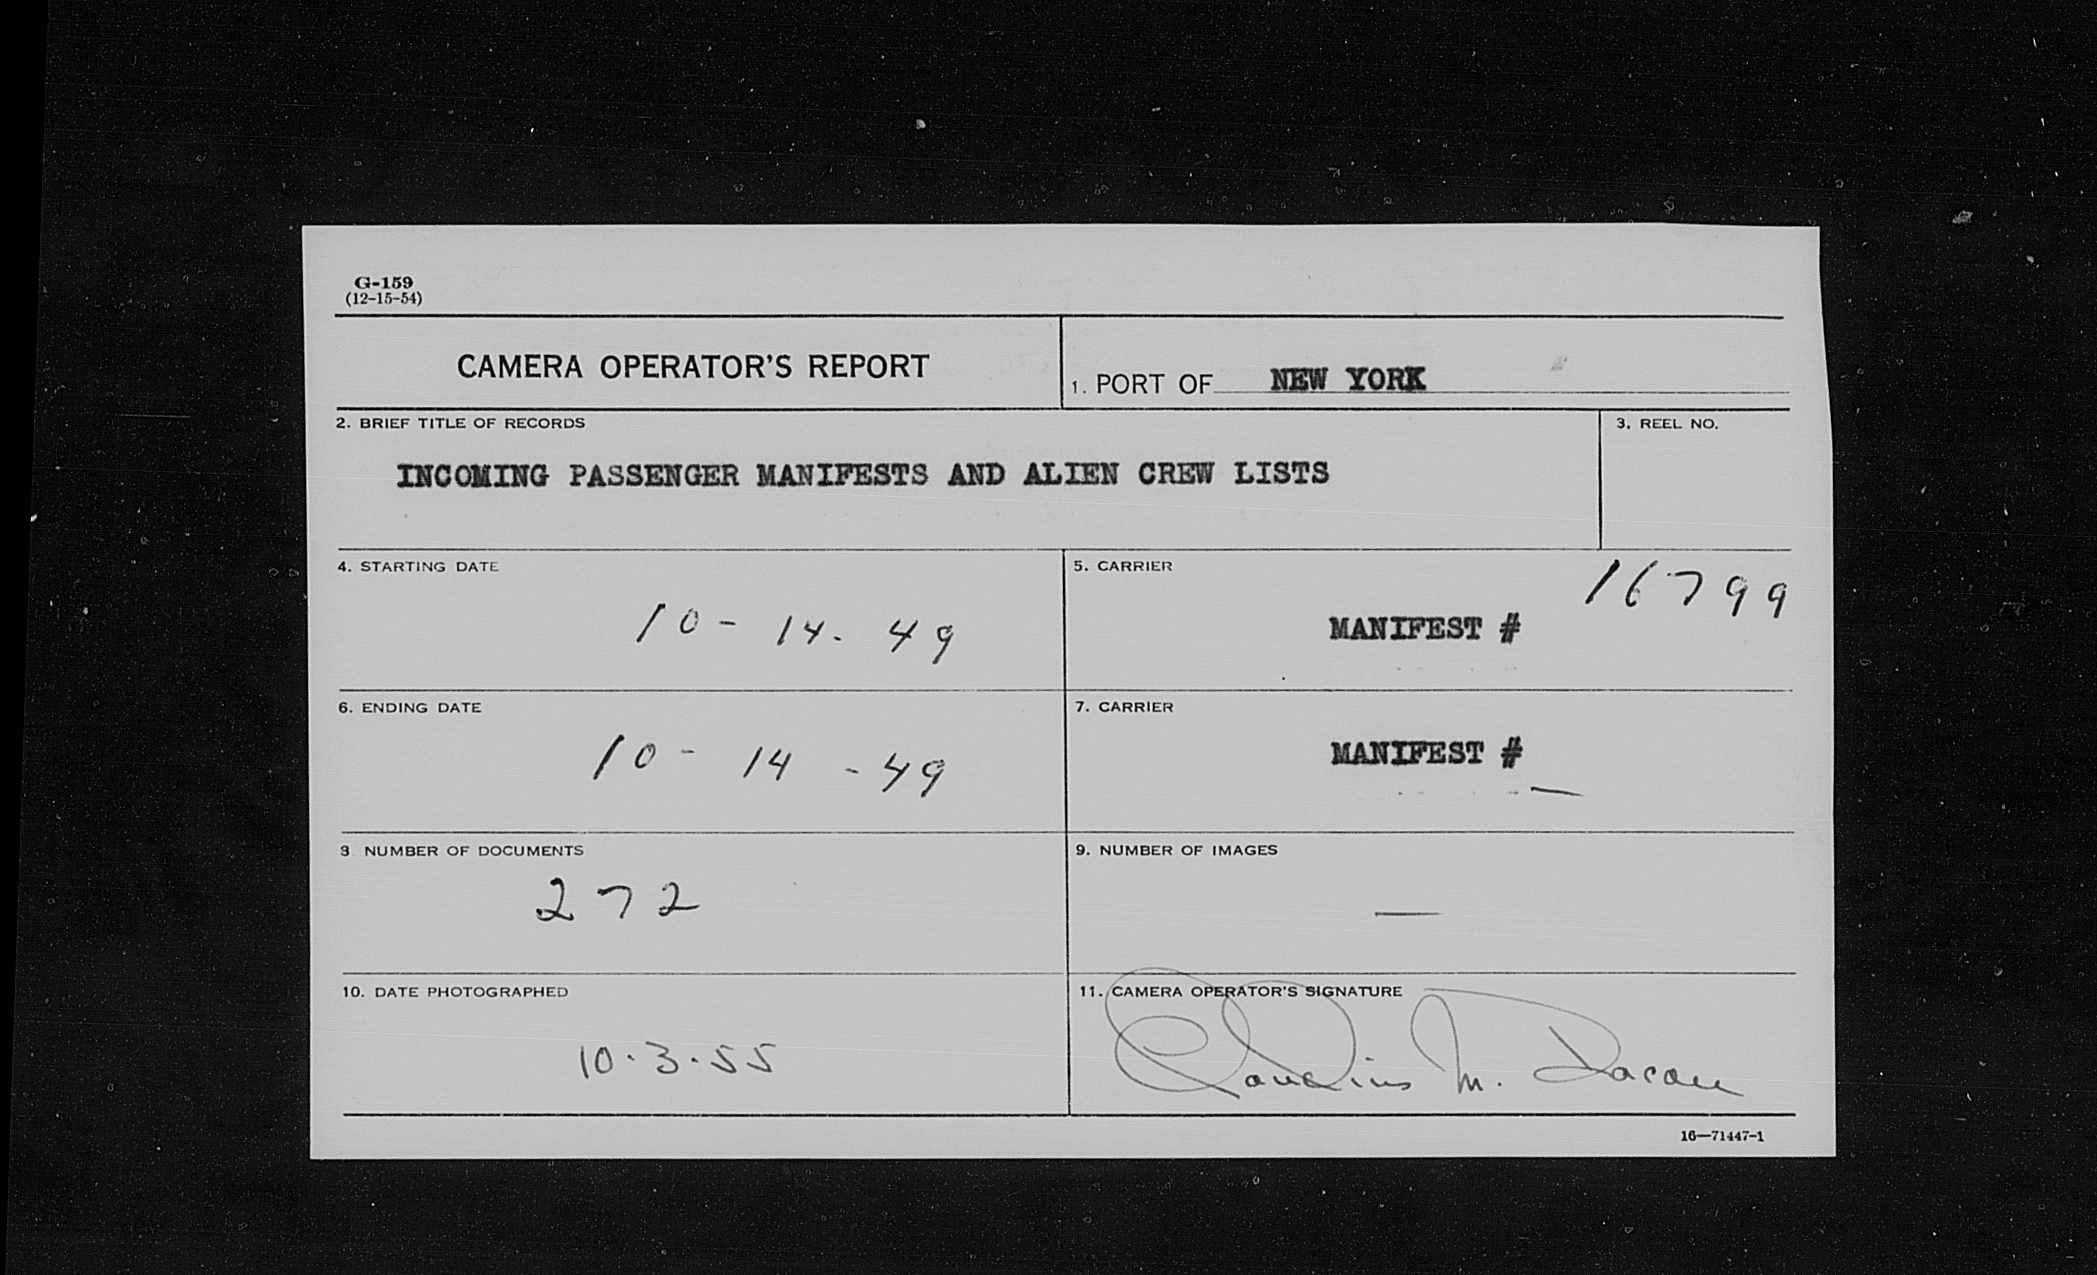 G-159
(12-15-54)
CAMERA OPERATOR'S REPORT
1. PORT OF NEW YORK
2. BRIEF TITLE OF RECORDS
INCOMING PASSENGER MANIFESTS AND ALIEN CREW LISTS
3. REEL NO.
4. STARTING DATE
10-14-49
5. CARRIER
16799
MANIFEST #
6. ENDING DATE
10-14-49
7. CARRIER
MANIFEST #
—
3 NUMBER OF DOCUMENTS
272
9. NUMBER OF IMAGES
—
10. DATE PHOTOGRAPHED
10.3.55
11. CAMERA OPERATOR'S SIGNATURE
Claudius M.
16—71447-1